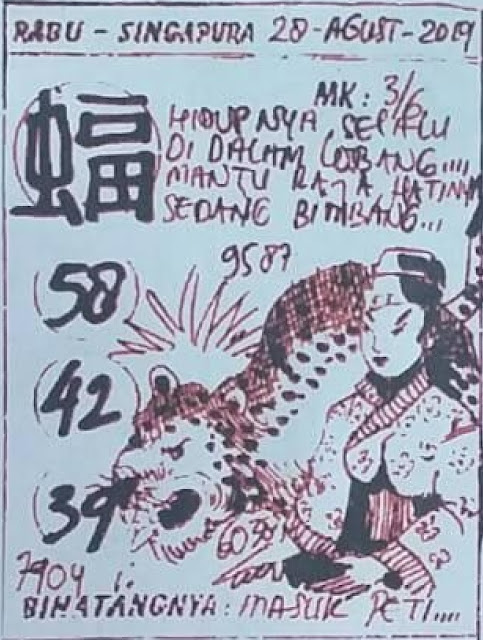 RABU - SINGAPURA 28-AGUST-2019
MK: 3/6
蝠
HIDUPNYA SELALU
DI DALAM LOBANG....
MANTU RAJA HATINYA
SEDANG BIMBANG...
9587
58
42
39
6038
7904
BINATANGNYA: MASUK PETI....